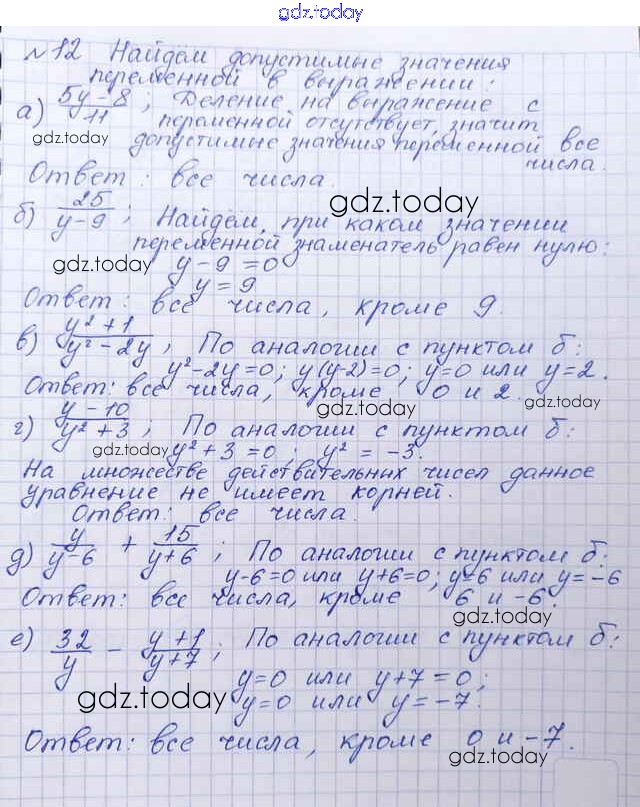 gdz.today
№12 Найдём допустимые значения
переменной в выражении:
а) (5y-8)/11; Деление на выражение с
переменной отсутствует, значит
gdz.today
допустимые значения переменной все
числа.
Ответ: все числа.
gdz.today
б) 25/(y-9); Найдём, при каком значении
переменной знаменатель равен нулю:
gdz.today
y-9=0
y=9
Ответ: все числа, кроме 9.
в) (y²+1)/(y²-2y); По аналогии с пунктом б:
y²-2y=0; y(y-2)=0; y=0 или y=2.
Ответ: все числа, кроме 0 и 2.
gdz.today
gdz.today
г) (y-10)/(y²+3); По аналогии с пунктом б:
gdz.today
y²+3=0; y²=-3.
На множестве действительных чисел данное
уравнение не имеет корней.
Ответ: все числа.
д) y/(y-6) + 15/(y+6); По аналогии с пунктом б:
y-6=0 или y+6=0; y=6 или y=-6
Ответ: все числа, кроме 6 и -6.
gdz.today
е) 32/y - (y+1)/(y+7); По аналогии с пунктом б:
y=0 или y+7=0;
gdz.today
y=0 или y=-7.
Ответ: все числа, кроме 0 и -7.
gdz.today